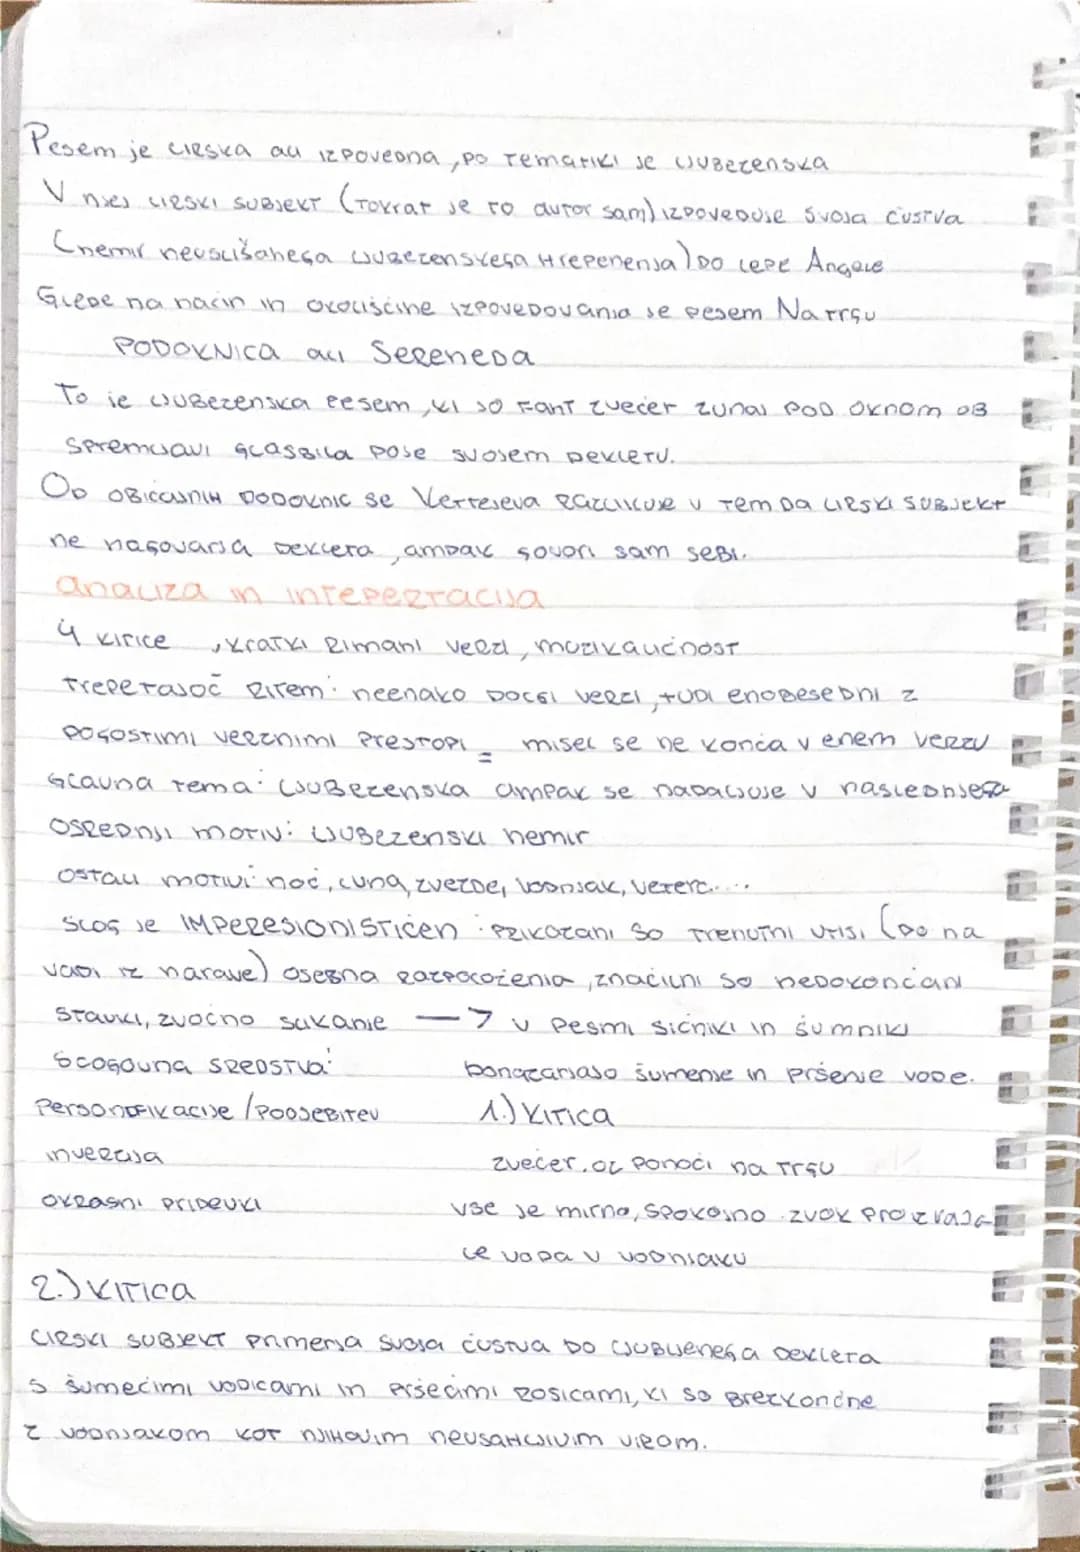 Pesem je lirska ali izpovedna, po tematiki je ljubezenska
V njej lirski subjekt (tokrat je to avtor sam) izpoveduje svoja čustva
(nemir neuslišanega ljubezenskega hrepenenja) do lepe Angele
Glede na način in okoliščine izpovedovanja je pesem Na trgu
PODOKNICA ali Serenada
To je ljubezenska pesem, ki jo fant zvečer zunaj pod oknom ob
spremljavi glasbila poje svojem dekletu.
Od običajnih podoknic se Kettejeva razlikuje v tem da lirski subjekt
ne nagovarja dekleta, ampak govori sam sebi.
analiza in intepertacija
4 kitice, kratki rimani verzi, muzikaličnost
trepetajoč ritem: neenako dolgi verzi, tudi enobesedni z
pogostimi verznimi prestopi = misel se ne konča v enem verzu
Glavna tema: ljubezenska ampak se nadaljuje v naslednjega
osrednji motiv: ljubezenski nemir
ostali motivi: noč, luna, zvezde, vodnjak, veterc....
slog je IMPERESIONISTIČEN: prikazani so trenutni vtisi (po na
vadi iz narave) osebna razpoloženja, značilni so nedokončani
stavki, zvočno slikanje —> v pesmi sičniki in šumniki
Slogovna sredstva:
ponazarjajo šumenje in pršenje vode.
Personifikacije/poosebitev
inverzija
okrasni pridevki
1.) Kitica
zvečer, oz ponoči na trgu
vse je mirno, spokojno. zvok proizvaja
le voda v vodnjaku
2.) KITICA
lirski subjekt primerja svoja čustva do ljubljenega dekleta
s šumečimi vodicami in pršečimi rosicami, ki so brezkončne
z vodnjakom kot njihovim neusahljivim virom.